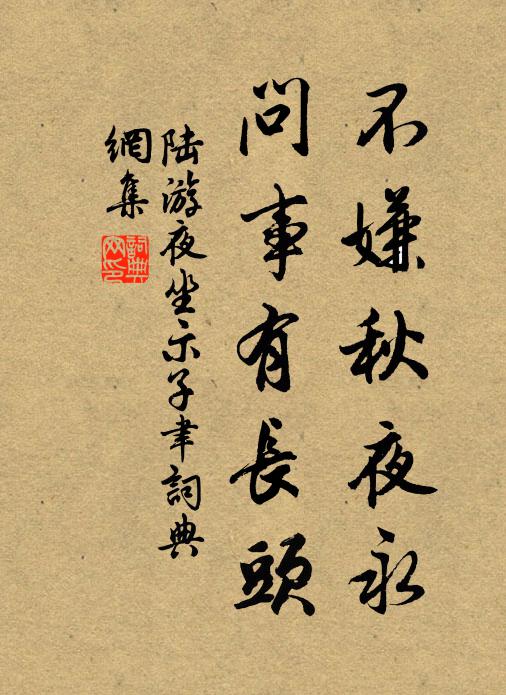 不嫌秋夜永
問事有長頭
陆游夜坐示子聿詞典
網集
詞典
网印